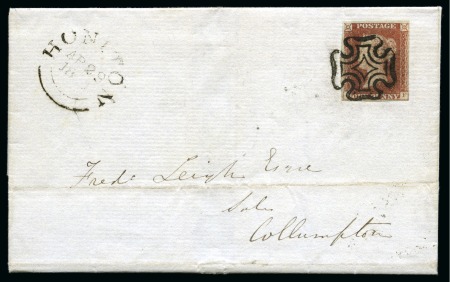 HONITON
AP 29
POSTAGE
ONE PENNY
Fredc Leigh Esqre
Solr
Collumpton